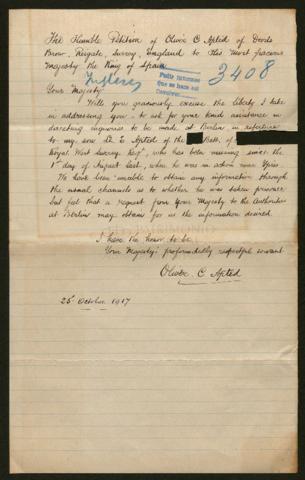 The Humble Petition of Olive C Apted of Deeds
Brow, Reigate, Surrey, England to His Most gracious
Majesty the King of Spain
Ingles
3408
Your Majesty
Will you graciously excuse the liberty I take
in addressing you - to ask for your kind assistance in
directing inquiries to be made at Berlin in reference
to my son Lt. E Apted of the Batt. of
Royal West Surrey Regt, who has been missing since the
1st day of August last, when he was in action near Ypres
We have been unable to obtain any information through
the usual channels as to whether he was taken prisoner
but feel that a request from Your Majesty to the Authorities
at Berlin may obtain for us the information desired.
I have the honor to be
Your Majesty's profoundedly respectful servant
Olive C Apted
25 October 1917